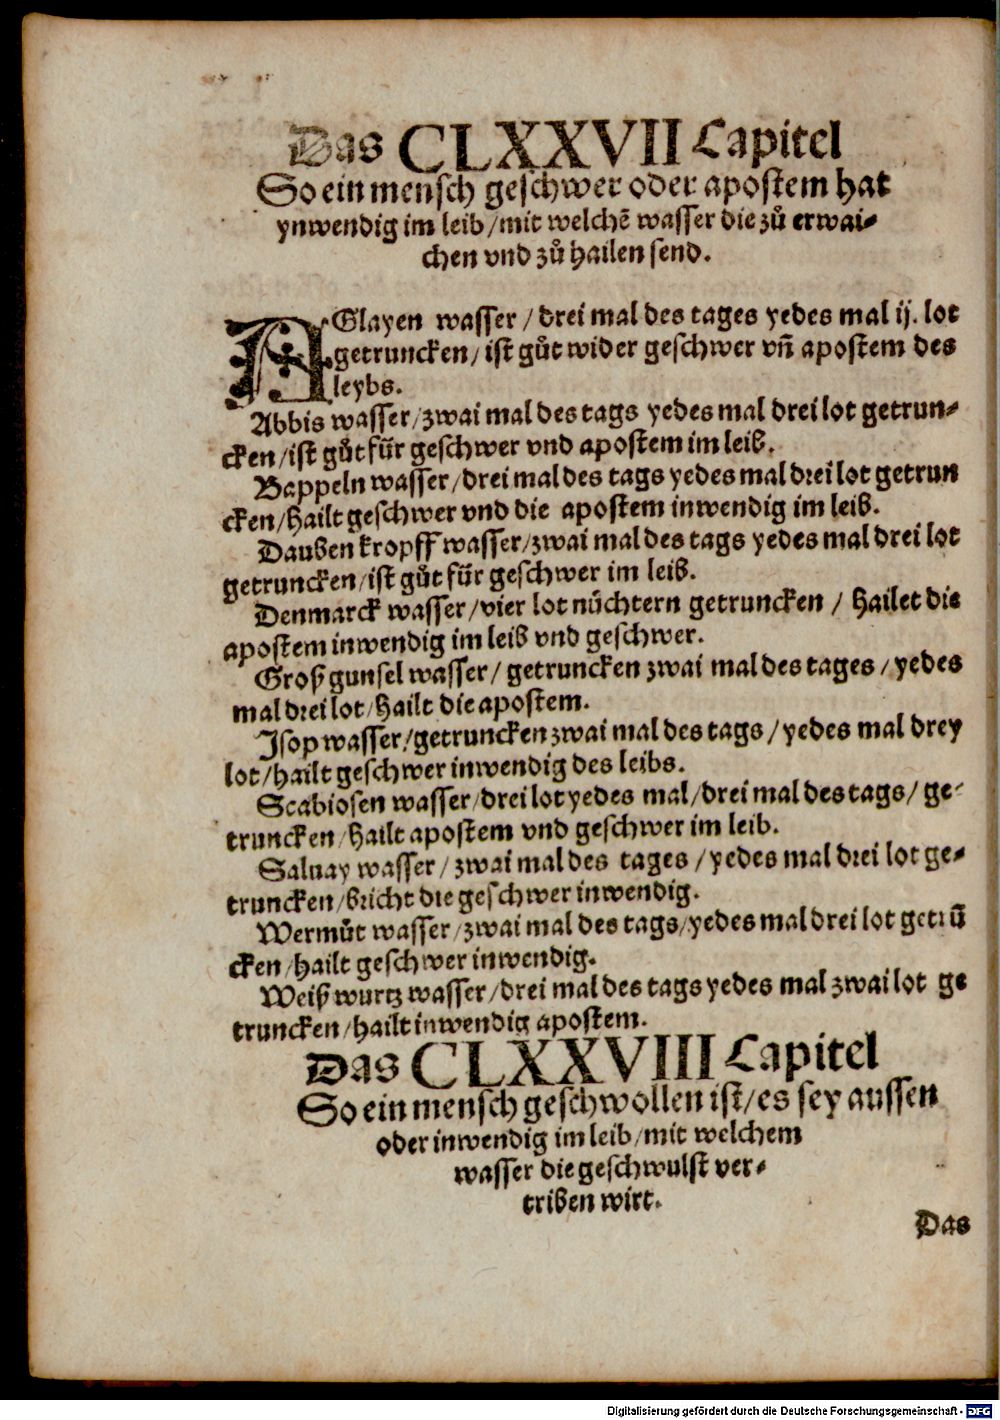 Das CLXXVII Capitel
So ein mensch geschwer oder apostem hat
ynwendig im leib/mit welchē wasser die zů erwai-
chen vnd zů hailen send.
AGlayen wasser / drei mal des tages yedes mal ij. lot
getruncken/ ist gůt wider geschwer vñ apostem des
leybs.
Abbis wasser/zwai mal des tags yedes mal drei lot getrun-
cken/ist gůt für geschwer vnd apostem im leib.
Bappeln wasser/drei mal des tags yedes mal drei lot getrun
cken/hailt geschwer vnd die apostem inwendig im leib.
Dauben kropff wasser/zwai mal des tags yedes mal drei lot
getruncken/ist gůt für geschwer im leib.
Denmarck wasser/vier lot nůchtern getruncken / hailet die
apostem inwendig im leib vnd geschwer.
Groß gunsel wasser/ getruncken zwai mal des tages/ yedes
mal drei lot/hailt die apostem.
Isop wasser/getruncken zwai mal des tags/ yedes mal drey
lot/hailt geschwer inwendig des leibs.
Scabiosen wasser/drei lot yedes mal/drei mal des tags/ ge-
truncken/hailt apostem vnd geschwer im leib.
Saluay wasser/ zwai mal des tages /yedes mal drei lot ge-
truncken/bricht die geschwer inwendig.
Wermůt wasser/zwai mal des tags/yedes mal drei lot getrū
cken/hailt geschwer inwendig.
Weiß wurtz wasser/drei mal des tags yedes mal zwai lot ge
truncken/hailt inwendig apostem.
Das CLXXVIII Capitel
So ein mensch geschwollen ist/es sey aussen
oder inwendig im leib/mit welchem
wasser die geschwulst ver-
triben wirt.
Das
Digitalisierung gefördert durch die Deutsche Forschungsgemeinschaft - DFG